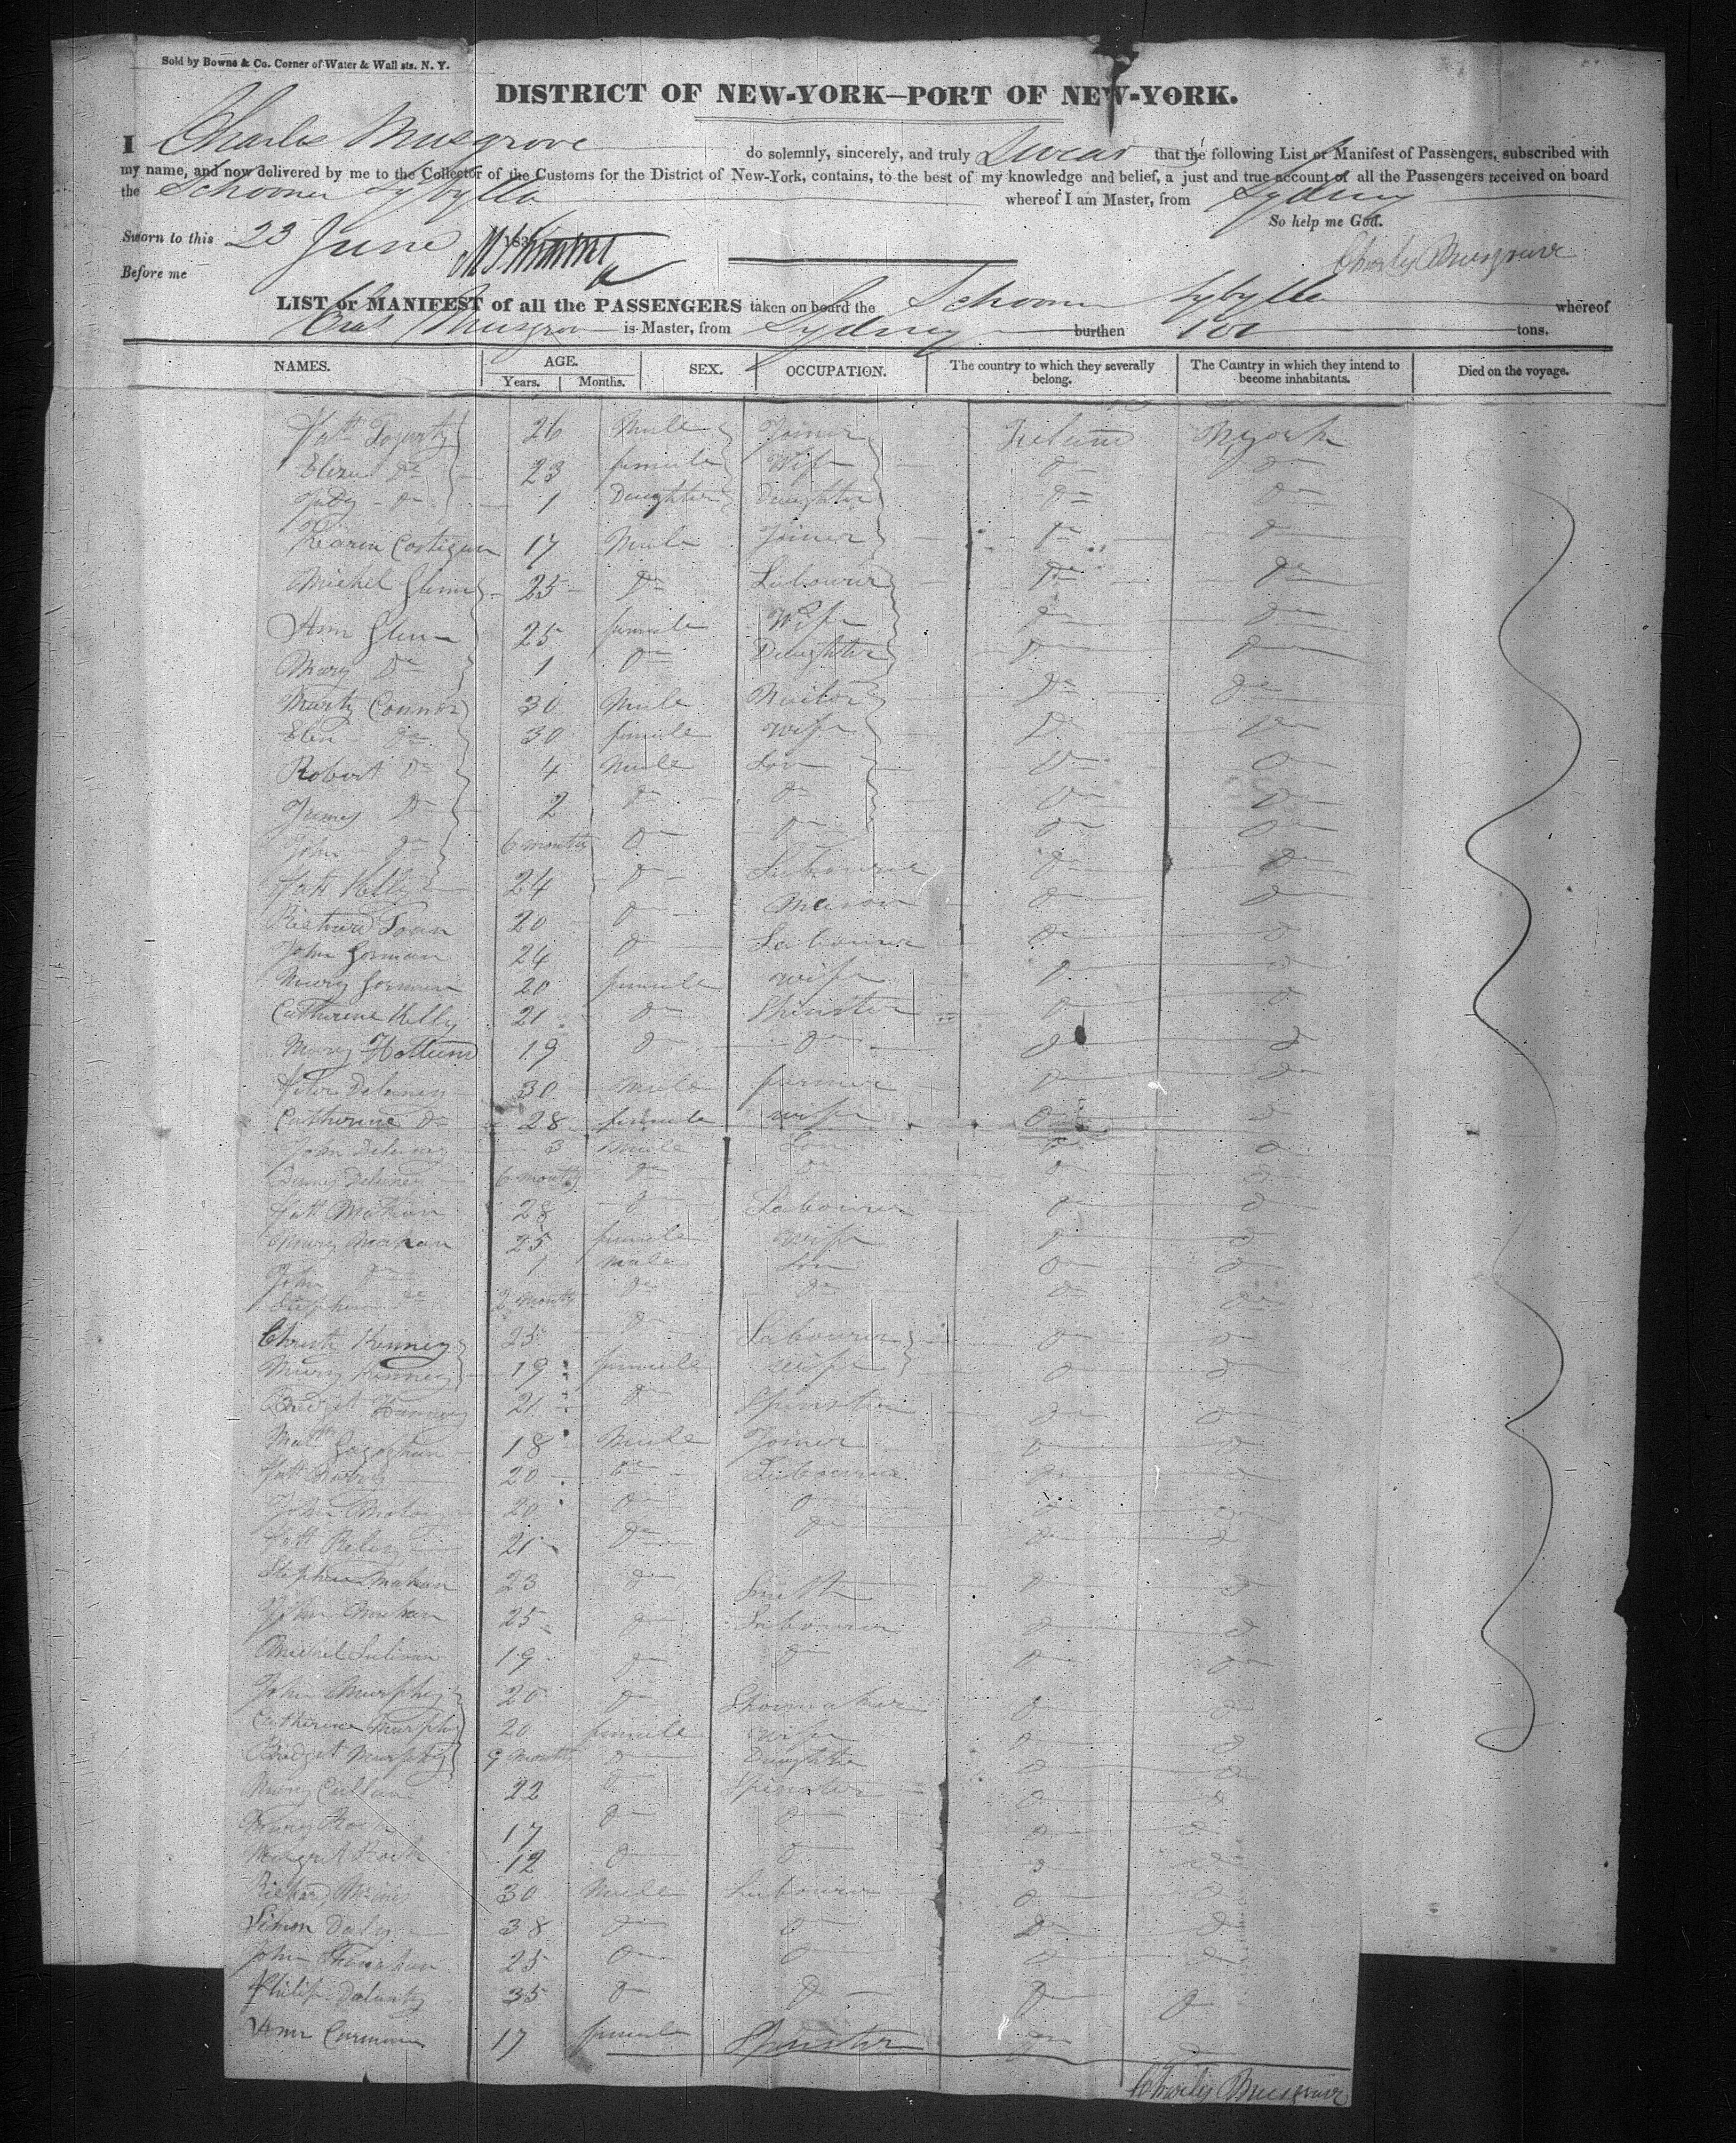 Sold by Bowne & Co. Corner of Water & Wall sts. N. Y.
DISTRICT OF NEW-YORK—PORT OF NEW-YORK.
I Charles Musgrove do solemnly, sincerely, and truly Swear that the following List or Manifest of Passengers, subscribed with
my name, and now delivered by me to the Collector of the Customs for the District of New-York, contains, to the best of my knowledge and belief, a just and true account of all the Passengers received on board
the Schooner Sybylla whereof I am Master, from Sydney
So help me God.
Sworn to this 23 June 183
Before me
Charles Musgrave
LIST or MANIFEST of all the PASSENGERS taken on board the Schooner Sybylla whereof
Chas Musgrove is Master, from Sydney burthen tons.
NAMES. AGE. Years. Months. SEX. OCCUPATION. The country to which they severally belong. The Cauntry in which they intend to become inhabitants. Died on the voyage.
Patt Fogerty 26 Male Joiner Ireland NYork
Eliza Do 23 female Wife Do Do
Judy Do 1 Daughter Daughter Do Do
Costigan 17 Male Joiner Do Do
Michel Glenn 25 Do Labourer Do Do
Ann Glenn 25 female Wife Do Do
Mary Do 1 Do Daughter Do Do
Martin Connor 30 Male Do Do
Elen Do 30 female wife Do Do
Robert Do 4 Male Son Do Do
James Do 2 Do Do Do Do
John Do 6 months Do Do Do Do
Patt Kelly 24 Do Labourer Do Do
Richard 20 Do Mason Do Do
John Gorman 24 Do Labourer Do Do
Mary Gorman 20 female wife Do Do
Catherine Kelly 21 Do Spinster Do Do
Mary Holland 19 Do Do Do Do
Peter Delaney 30 Male farmer Do Do
Catherine Do 28 female wife Do Do
John Delaney 3 Male Son Do Do
Delaney 6 months Do Do Do Do
Patt Mahan 28 Do Labourer Do Do
Mary Mahan 25 female wife Do Do
John Do 1 Male Son Do Do
Stephen Do 2 months Do Do Do Do
Christy Kenney 25 Do Labourer Do Do
Mary Kenney 19 female wife Do Do
Bridget 21 Do Spinster Do Do
Matt Gagaghan 18 Male Joiner Do Do
Patt 20 Do Labourer Do Do
John 20 Do Do Do Do
Patt 21 Do Do Do Do
Stephen Mahan 23 Do Smith Do Do
John Mahan 25 Do Labourer Do Do
Michel Sulivan 19 Do Do Do Do
John Murphy 20 Do Shoemaker Do Do
Catherine Murphy 20 female wife Do Do
Bridget Murphy 9 months Do Daughter Do Do
Mary 22 Do Spinster Do Do
17 Do Do Do Do
Margret 12 Do Do Do Do
Richard 30 Male Labourer Do Do
Simon Daly 38 Do Do Do Do
John 25 Do Do Do Do
Philip 35 Do Do Do Do
Ann 17 female Spinster Do Do
Charles Musgrave